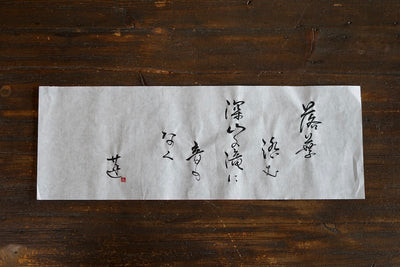 落葉
浴む
深山の滝に
音の
なく